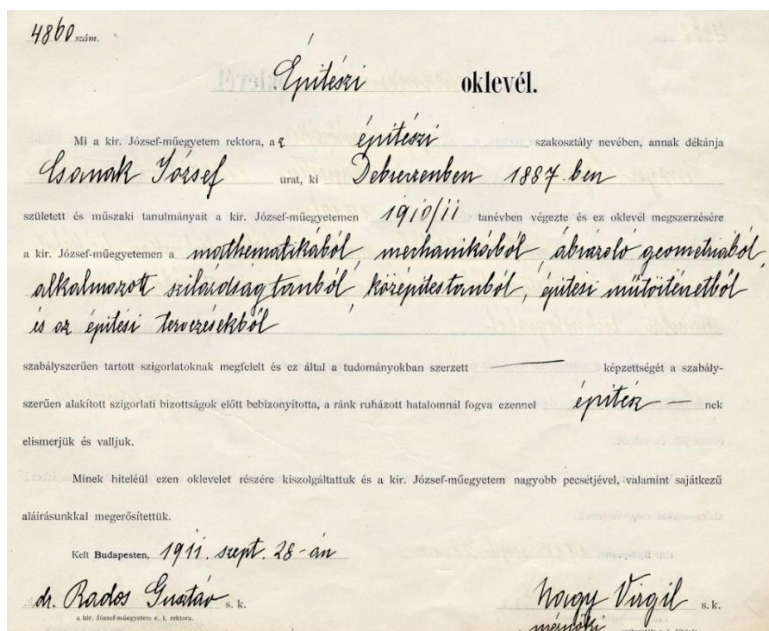 4860 szám.
Építészi oklevél.
Mi a kir. József-műegyetem rektora, az építészi szakosztály nevében, annak dékánja
Csanak József urat, ki Debreczenben 1887.ben
született és műszaki tanulmányait a kir. József-műegyetemen 1910/11 tanévben végezte és ez oklevél megszerzésére
a kir. József-műegyetemen a mathematikából, mechanikából, ábrázoló geometriából,
alkalmazott szilárdságtanból, középitéstanból, építési műtörténetből
és az építési tervezésekből
szabályszerűen tartott szigorlatoknak megfelelt és ez által a tudományokban szerzett — képzettségét a szabály-
szerűen alakított szigorlati bizottságok előtt bebizonyította, a ránk ruházott hatalomnál fogva ezennel építész — nek
elismerjük és valljuk.
Minek hiteléül ezen oklevelet részére kiszolgáltattuk és a kir. József-műegyetem nagyobb pecsétjével, valamint sajátkezű
aláírásunkkal megerősítettük.
Kelt Budapesten, 1911. szept. 28-án
dr. Rados Gusztáv s. k. Nagy Virgil s. k.
a kir. József-műegyetem e. i. rektora. mérnöki